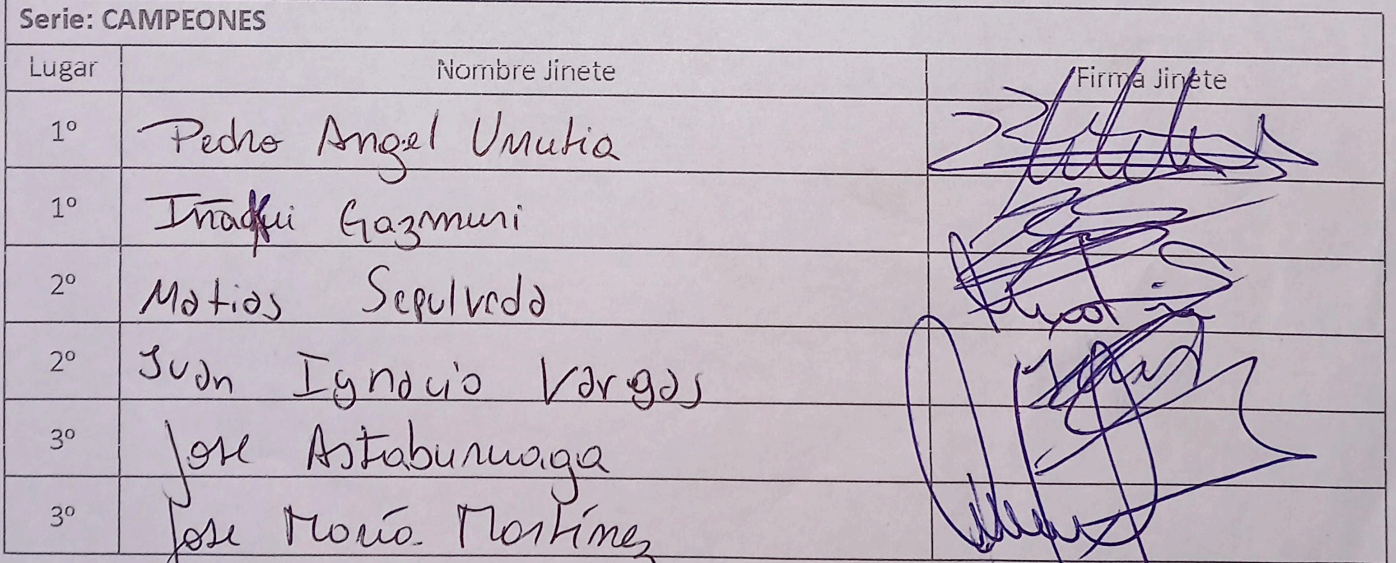 Serie: CAMPEONES
Lugar Nombre Jinete Firma Jinete
1º Pedro Angel Urrutia
1º Iñaqui Gazmuri
2º Matias Sepulveda
2º Juan Ignacio Vargas
3º Jose Astaburuaga
3º Jose María Martínez